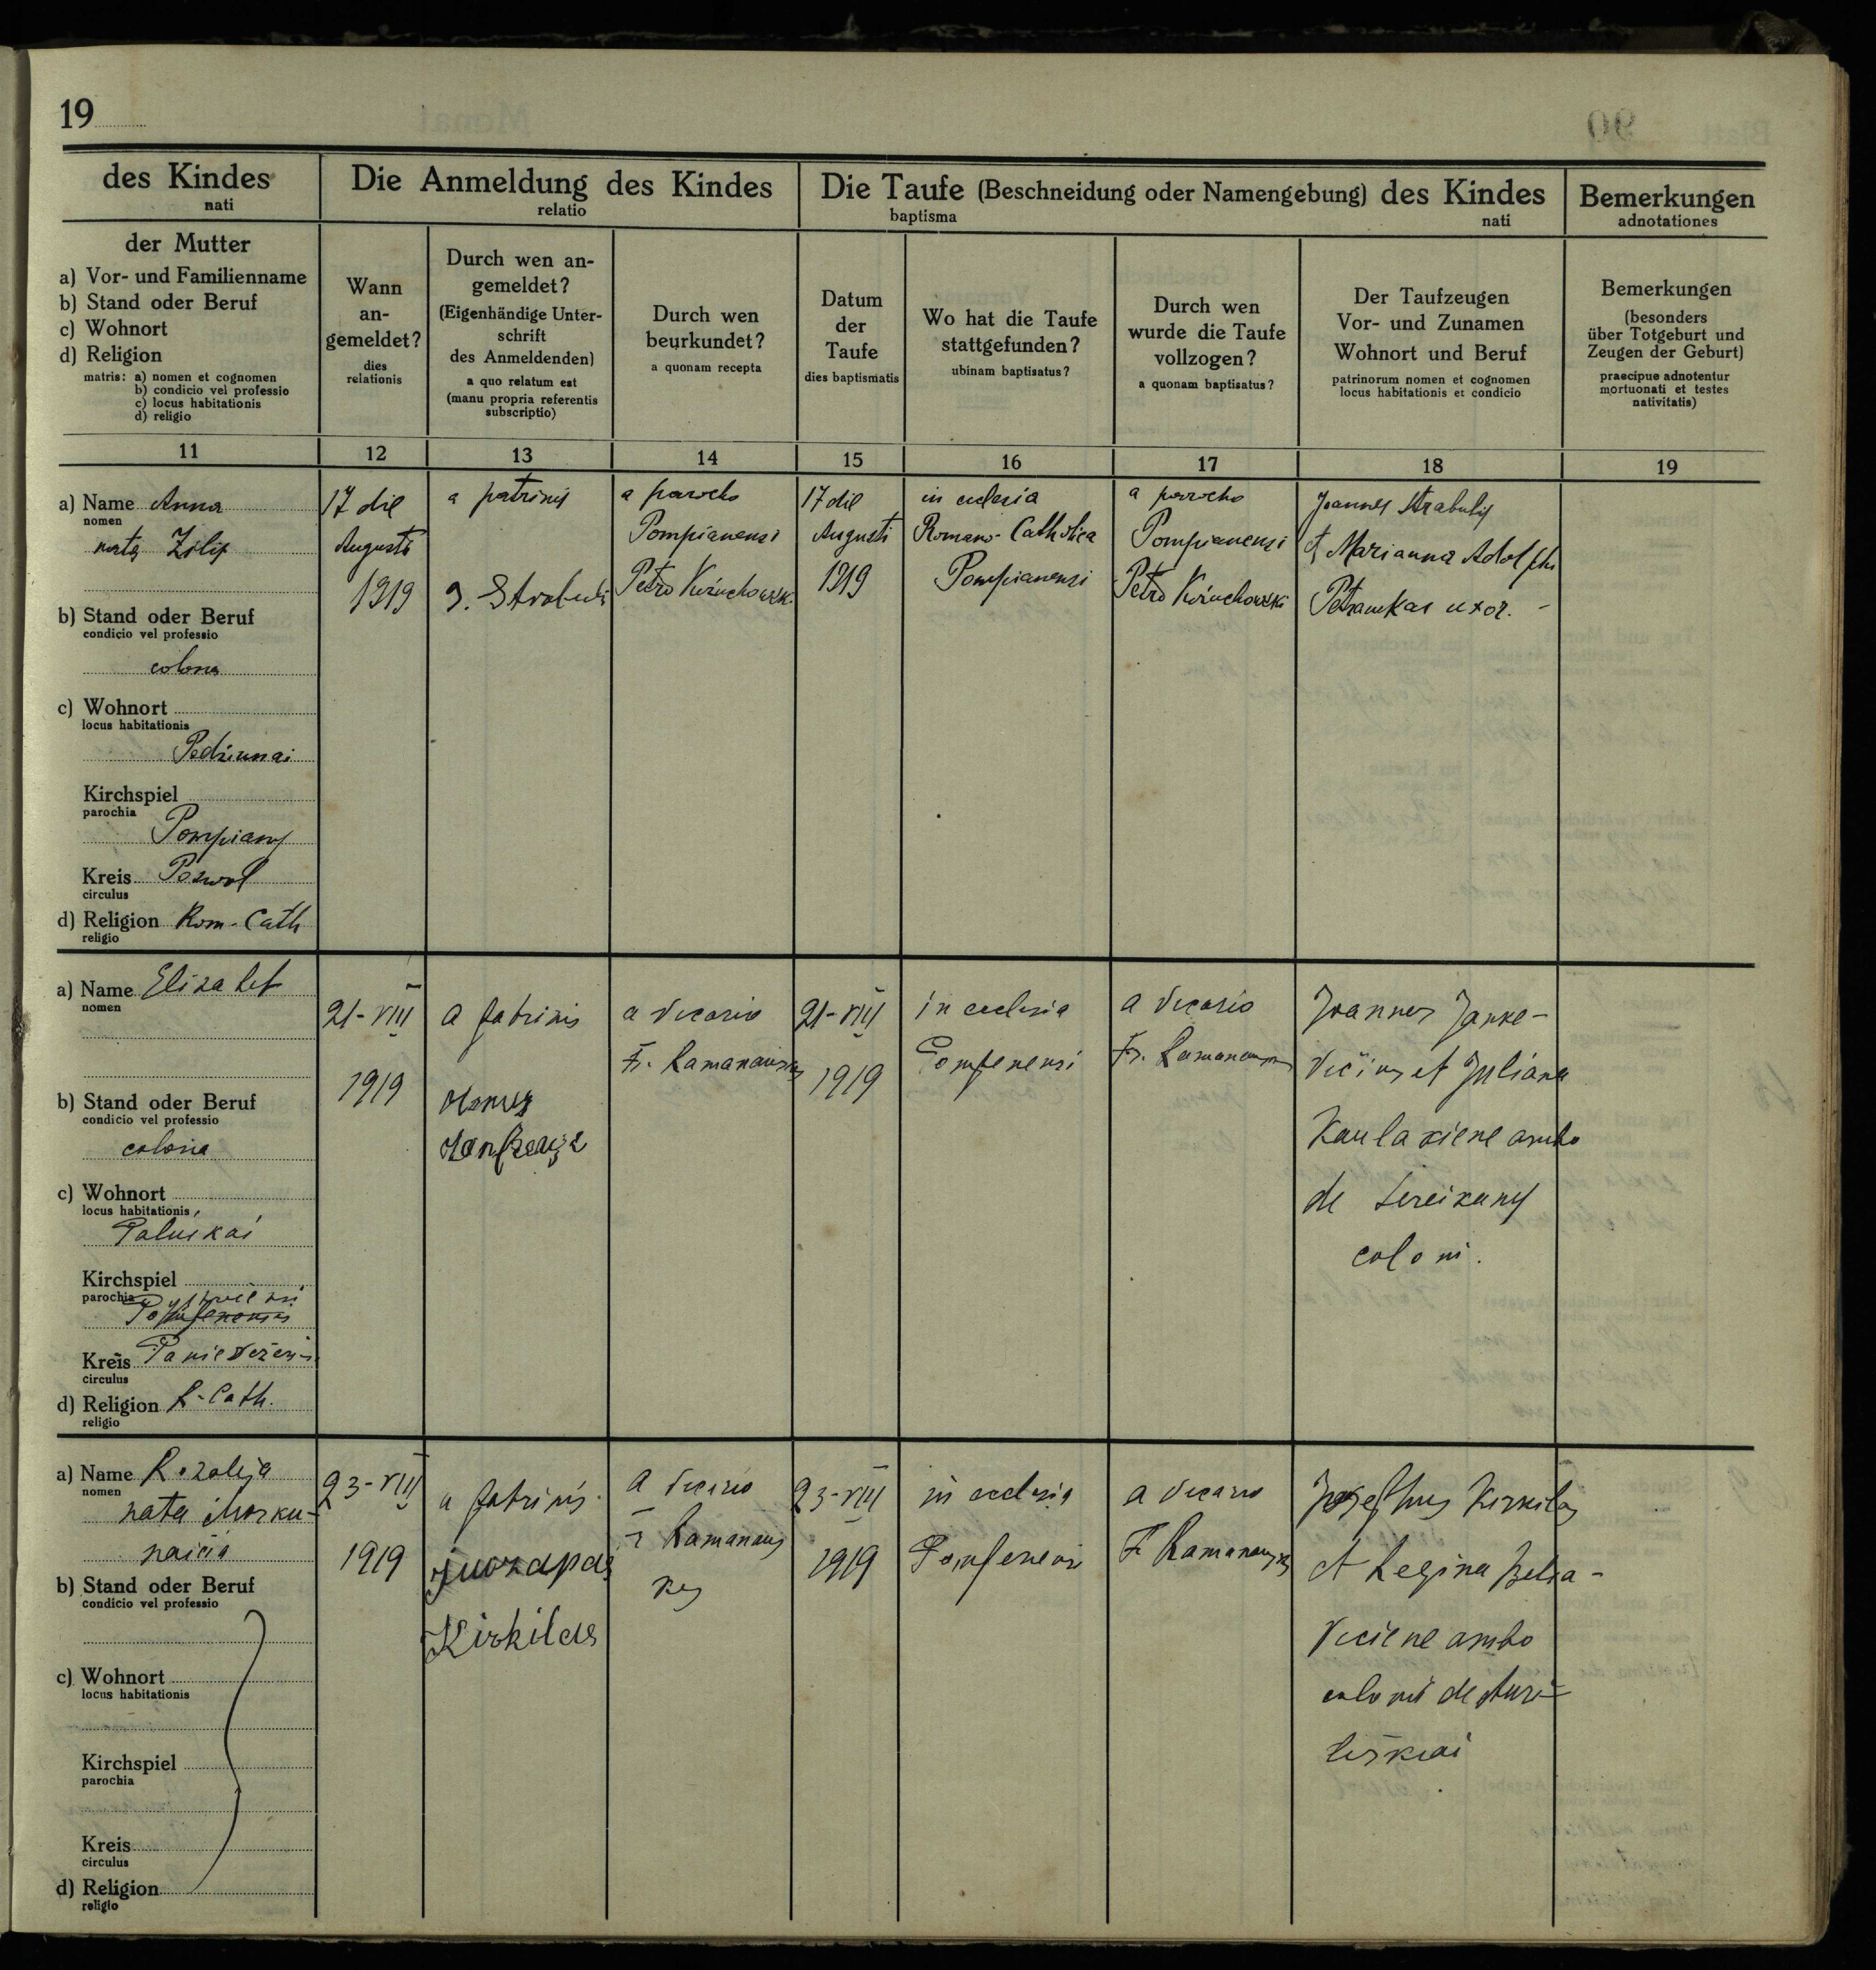 19
des Kindes
nati
Die Anmeldung des Kindes
relatio
Die Taufe (Beschneidung oder Namengebung) des Kindes
baptisma nati
Bemerkungen
adnotationes
der Mutter
a) Vor- und Familienname
b) Stand oder Beruf
c) Wohnort
d) Religion
matris: a) nomen et cognomen
b) condicio vel professio
c) locus habitationis
d) religio
Wann
an-
gemeldet?
dies
relationis
Durch wen an-
gemeldet?
(Eigenhändige Unter-
schrift
des Anmeldenden)
a quo relatum est
(manu propria referentis
subscriptio)
Durch wen
beurkundet?
a quonam recepta
Datum
der
Taufe
dies baptismatis
Wo hat die Taufe
stattgefunden?
ubinam baptisatus?
Durch wen
wurde die Taufe
vollzogen?
a quonam baptisatus?
Der Taufzeugen
Vor- und Zunamen
Wohnort und Beruf
patrinorum nomen et cognomen
locus habitationis et condicio
Bemerkungen
(besonders
über Totgeburt und
Zeugen der Geburt)
praecipue adnotentur
mortuonati et testes
nativitatis)
11 12 13 14 15 16 17 18 19
a) Name Anna
nomen
nata Zilis
b) Stand oder Beruf
condicio vel professio
colona
c) Wohnort
locus habitationis
Pedziunai
Kirchspiel
parochia
Pompiany
Kreis Poswol
circulus
d) Religion Rom-Cath
religio
17 die
Augusti
1919
a patrinis
a parocho
Pompianensi
Petro
17 die
Augusti
1919
in eclesia
Romano-Catholica
Pompianensi
a parocho
Pompianensi
Petro
Joannes Strabulis
et Marianna Adolphi
Petrauskas uxor.
a) Name Elizabet
nomen
b) Stand oder Beruf
condicio vel professio
colona
c) Wohnort
locus habitationis
Paluskai
Kirchspiel
parochia
Kreis
circulus
d) Religion R-Cath.
religio
21-VIII
1919
a patrinis
a vicario
Fr. Ramanauskas
21-VIII
1919
in eclesia
Pompenensi
a vicario
Fr.
Joannes Janke-
vičius et Juliana
Kaulakiene ambo
de
coloni.
a) Name Rozalija
nomen
nata Morku-
naičia
b) Stand oder Beruf
condicio vel professio
c) Wohnort
locus habitationis
Kirchspiel
parochia
Kreis
circulus
d) Religion
religio
23-VIII
1919
a patrinis
juozapas
Kirkilas
a vicario
Fr Ramanaus
kas
23-VIII
1919
in ecclesia
Pompenensi
a vicario
F. Ramanauskas
Josephus Kirkilas
et Regina
viciene ambo
coloni de